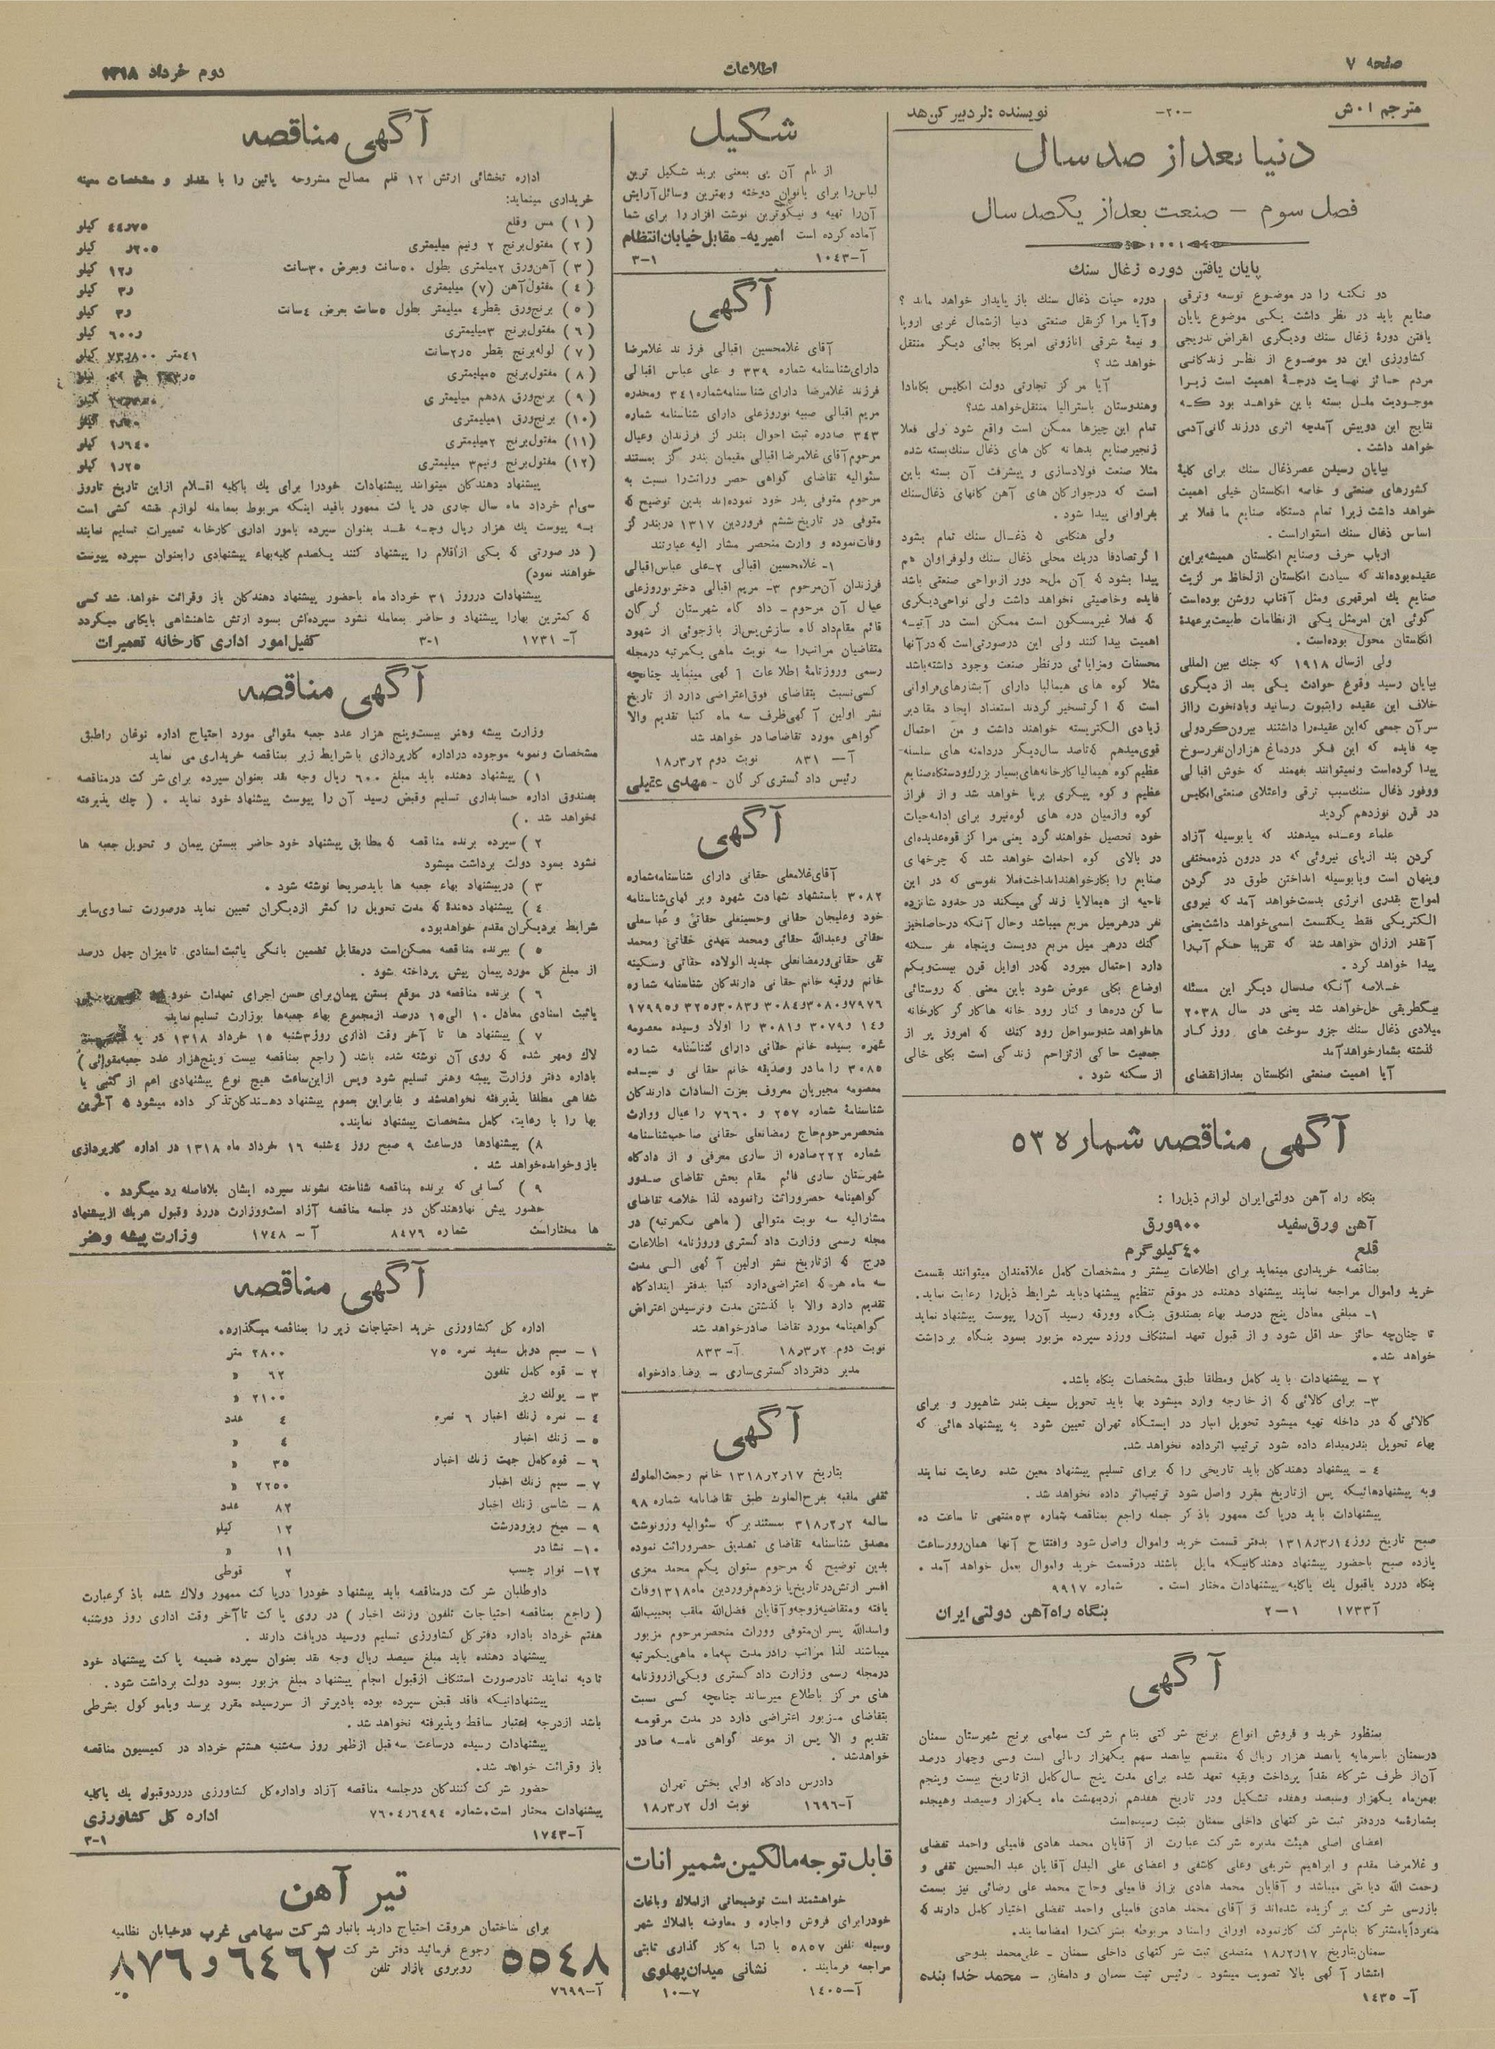 صفحه ۷
اطلاعات
دوم خرداد ۱۳۱۸
مترجم ا۰ش
-۲۰-
نویسنده :لردبیر کن‌هد
دنیا بعد از صد سال
فصل سوم – صنعت بعد از یکصد سال
پایان یافتن دوره زغال سنك
دو نکته را در موضوع توسعه وترقی
صنایع باید در نظر داشت یکی موضوع پایان
یافتن دورهٔ زغال سنك ودیگری انقراض تدریجی
کشاورزی این دو موضوع از نظر زندگانی
مردم حائز نهایت درجهٔ اهمیت است زیرا
موجودیت ملل بسته باین خواهد بود که
نتایج این دوپیش آمدچه اثری درزندگانی‌آدمی
خواهد داشت.
بپایان رسیدن عصرذغال سنك برای کلیهٔ
کشورهای صنعتی و خاصه انگلستان خیلی اهمیت
خواهد داشت زیرا تمام دستگاه صنایع ما فعلا بر
اساس ذغال سنك استواراست.
ارباب حرف وصنایع انگلستان همیشه‌براین
عقیده‌بوده‌اند که سیادت انگلستان ازلحاظ مرکزیت
صنایع یك امرقهری ومثل آفتاب روشن بوده‌است
گوئی این امرمثل یکی ازنظامات طبیعت‌برعهدهٔ
انگلستان محول بوده‌است.
ولی ازسال ۱۹۱۸ که جنك بین المللی
بپایان رسید وقوع حوادث یکی بعد از دیگری
خلاف این عقیده راثبوت رسانید وبادنخوت رااز
سرآن جمعی که‌این عقیده‌را داشتند بیرون‌کردولی
چه فایده که این فکر دردماغ هزاران‌نفررسوخ
پیدا کرده‌است ونمیتوانند بفهمند که خوش اقبالی
ووفور ذغال سنك‌سبب ترقی واعتلای صنعتی‌انگلیس
در قرن نوزدهم گردید
علماء وعده میدهند که یابوسیله آزاد
کردن بند ازپای نیروئی که در درون ذره‌مختفی
وپنهان است ویابوسیله انداختن طوق در گردن
امواج بقدری انرژی بدست‌خواهد آمد که نیروی
الکتریکی فقط یکقسمت اسمی‌خواهد داشت‌یعنی
آنقدر ارزان خواهد شد که تقریبا حکم آب‌را
پیدا خواهد کرد.
خلاصه آنکه صدسال دیگر این مسئله
بیکطریقی حل‌خواهد شد یعنی در سال ۲۰۳۸
میلادی ذغال سنك جزو سوخت های روز گار
گذشته بشمارخواهدآمد
آیا اهمیت صنعتی انگلستان بعدازانقضای
دوره حیات ذغال سنك باز پایدار خواهد ماند ؟
وآیا مراکزثقل صنعتی دنیا ازشمال غربی اروپا
و نیمهٔ شرقی اتازونی امریکا بجائی دیگر منتقل
خواهد شد ؟
آیا مرکز تجارتی دولت انگلیس بکانادا
وهندوستان یاسترالیا منتقل‌خواهد شد؟
تمام این چیزها ممکن است واقع شود ولی فعلا
زنجیرصنایع بدهانه کان های ذغال سنك‌بسته شده
مثلا صنعت فولادسازی و پیشرفت آن بسته باین
است که درجوارکان های آهن کانهای ذغال‌سنك
بفراوانی پیدا شود .
ولی هنگامی که ذغال سنك تمام بشود
اگرتصادفا دریك محلی ذغال سنك ولوفراوان هم
پیدا بشود که آن محل دور ازنواحی صنعتی باشد
فایده وخاصیتی نخواهد داشت ولی نواحی‌دیگری
که فعلا غیرمسکون است ممکن است در آتیه
اهمیت پیدا کنند ولی این درصورتی‌است که‌درآنها
محسنات ومزایائی درنظر صنعت وجود داشته‌باشد
مثلا کوه های هیمالیا دارای آبشارهای‌فراوانی
است که اگرتسخیر گردند استعداد ایجاد مقادیر
زیادی الکتریسته خواهند داشت و من احتمال
قوی‌میدهم که‌تاصد سال‌دیگر دردامنه های سلسله
عظیم‌کوه هیمالیاکارخانه‌های‌بسیار بزرك‌ودستگاه‌صنایع
عظیم و کوه پیکری برپا خواهد شد و از فراز
کوه وازمیان دره های کوه‌نیرو برای ادامه‌حیات
خود تحصیل خواهند کرد یعنی مراکز قوه‌عدیده‌ای
در بالای کوه احداث خواهد شد که چرخهای
صنایع را بکارخواهندانداخت‌فعلا نفوسی که در این
ناحیه از هیمالایا زندگی میکند در حدود شانزده
نفر درهرمیل مربع میباشد وحال آنکه درحاصلخیز
گنك درهر میل مربع دویست وپنجاه نفر سکنه
دارد احتمال میرود که‌در اوایل قرن بیست‌ویکم
اوضاع بکلی عوض شود باین معنی که روستائی
ساکن دره‌ها و کنار رود خانه هاکارگر کارخانه
هاخواهد شدوسواحل رود گنك که امروز پر از
جمعیت حاکی ازتزاحم زندگی است بکلی خالی
از سکنه شود .
آگهی مناقصه شماره ۵۳
بنگاه راه آهن دولتی‌ایران لوازم ذیل‌را :
آهن ورق‌سفید ۹۰۰ورق
قلع ۴۰کیلوگرم
بمناقصه خریداری مینماید برای اطلاعات بیشتر و مشخصات کامل علاقمندان میتوانند بقسمت
خرید واموال مراجعه نمایند پیشنهاد دهنده در موقع تنظیم پیشنهادباید شرایط ذیل‌را رعایت نماید.
۱- مبلغی معادل پنج درصد بهاء بصندوق بنگاه وورقه رسید آن‌را پیوست پیشنهاد نماید
تا چنان‌چه حائز حد اقل شود و از قبول تعهد استنکاف ورزد سپرده مزبور بسود بنگاه برداشت
خواهد شد.
۲ – پیشنهادات باید کامل ومطلقا طبق مشخصات بنگاه باشد.
۳- برای کالائی که از خارجه وارد میشود بها باید تحویل سیف بندر شاهپور و برای
کالائی که در داخله تهیه میشود تحویل انبار در ایستگاه تهران تعیین شود به پیشنهاد هائی که
بهاء تحویل بندرمبداء داده شود ترتیب اثرداده نخواهد شد.
٤ – پیشنهاد دهندگان باید تاریخی را که برای تسلیم پیشنهاد معین شده رعایت نمایند
وبه پیشنهادهائیکه پس ازتاریخ مقرر واصل شود ترتیب‌اثر داده نخواهد شد .
پیشنهادات باید درپاکت ممهور باذکر جمله راجع بمناقصه شماره ۵۳منتهی تا ساعت ده
صبح تاریخ روز۱۴ر۳ر۱۳۱۸ بدفتر قسمت خرید واموال واصل شود وافتتاح آنها همان‌روزساعت
یازده صبح باحضور پیشنهاد دهندگانیکه مایل باشند درقسمت خرید واموال بعمل خواهد آمد .
بنگاه دررد یاقبول یك یاکلیه پیشنهادات مختار است . شماره ۹۹۱۷
آ–۱۷۳۳ ۲—۱ بنگاه راه‌آهن دولتی‌ایران
آگهی
بمنظور خرید و فروش انواع برنج شرکتی بنام شرکت سهامی برنج شهرستان سمنان
درسمنان باسرمایه پانصد هزار ریال که منقسم بپانصد سهم یکهزار ریالی است وسی وچهار درصد
آن‌از طرف شرکاء نقداً پرداخت وبقیه تعهد شده برای مدت پنج سال‌کامل ازتاریخ بیست وپنجم
بهمن‌ماه یکهزار وسیصد وهفده تشکیل ودر تاریخ هفدهم اردیبهشت ماه یکهزار وسیصد وهیجده
بشمارهٔ‌سه دردفتر ثبت شرکتهای داخلی سمنان بثبت رسیده‌است
اعضای اصلی هیئت مدیره شرکت عبارت از آقایان محمد هادی فامیلی واحمد تفضلی
و غلامرضا مقدم و ابراهیم شریفی وعلی کاشفی و اعضای علی البدل آقایان عبد الحسین تقفی و
رحمت الله دیانتی میباشد و آقایان محمد هادی بزاز فامیلی وحاج محمد علی رضائی نیز بسمت
بازرسی شرکت برگزیده شده‌اند و آقای محمد هادی فامیلی واحمد تفضلی اختیار کامل دارند که
منفرداًیامشترکا بنام‌شرکت کارنموده اوراق واسناد مربوطه بشرکت‌را امضانمایند.
سمنان‌بتاریخ ۱۷ر۲ر۱۸ متصدی ثبت شرکتهای داخلی سمنان – علی‌محمد بدوحی
انتشار آگهی بالا تصویب میشود . رئیس ثبت سمنان و دامغان – محمد خدا بنده
آ- ۱۴۳۵
شکیل
از نام آن پی بمعنی برید شکیل ترین
لباس‌را برای بانوان دوخته وبهترین وسائل‌آرایش
آن‌را تهیه و نیکوترین نوشت افزار را برای شما
آماده کرده است امیریه- مقابل‌خیابان‌انتظام
آ-۱۰۴۳ ۳-۱
آگهی
آقای غلامحسین اقبالی فرزند غلامرضا
دارای‌شناسنامه شماره ۳۳۹ و علی عباس اقبالی
فرزند غلامرضا دارای شناسنامه‌شماره ۳۴۱ ومخدره
مریم اقبالی صبیه نوروزعلی دارای شناسنامه شماره
۳۴۳ صادره ثبت احوال بندر گز فرزندان وعیال
مرحوم‌آقای غلامرضا اقبالی مقیمان بندر گز بمستند
سئوالیه تقاضای گواهی حصر وراثت‌را نسبت به
مرحوم متوفی بدر خود نموده‌اند بدین توضیح که
متوفی در تاریخ ششم فروردین ۱۳۱۷ دربندر گز
وفات‌نموده و وارث منحصر مشار الیه عبارتند
۱- غلامحسین اقبالی ۲-علی عباس‌اقبالی
فرزندان آن‌مرحوم ۳- مریم اقبالی دختر‌نوروزعلی
عیال آن مرحوم- دادگاه شهرستان گرگان
قائم مقام‌دادگاه سازش‌پس‌از بازجوئی از شهود
متقاضیان مراتب‌را سه نوبت ماهی یکمرتبه درمجله
رسمی وروزنامهٔ اطلاعات آگهی مینماید چنانچه
کسی‌نسبت بتقاضای فوق‌اعتراضی دارد از تاریخ
نشر اولین آگهی‌ظرف سه ماه کتبا تقدیم والا
گواهی مورد تقاضاصادر خواهد شد
آ— ۸۳۱ نوبت دوم ۲ر۳ر۱۸
رئیس دادگستری‌گرگان - مهدی عقیلی
آگهی
آقای‌غلامعلی حقانی دارای شناسنامه‌شماره
۳۰۸۲ باستشهاد شهادت شهود وبرگهای‌شناسنامه
خود وعلیجان حقانی وحسینعلی حقانی و عباسعلی
حقانی وعبدالله حقانی ومحمد مهدی حقانی ومحمد
تقی حقانی‌ورمضانعلی جدید الولاده حقانی وسکینه
خانم ورقیه خانم حقانی دارندگان شناسنامه شماره
۷۹۷۶و۳۰۸۰و۳۰۸۴و۳۰۸۳و۳۲۵و۱۷۹۹۵
و۱۴و۳۰۷۹و۳۰۸۱ را اولاد وسیده معصومه
شهره بسیده خانم حقانی دارای شناسنامه شماره
۳۰۸۵ را مادر وصدیقه خانم حقانی و سیده
معصومه مجیریان معروف بعزت السادات دارندگان
شناسنامهٔ شماره ۲۵۷ و ۷۶۶۰ را عیال ووارث
منحصرمرحوم‌حاج رمضانعلی حقانی صاحب‌شناسنامه
شماره ۲۲۲صادره از ساری معرفی و از دادگاه
شهرستان ساری قائم مقام بخش تقاضای صدور
گواهینامه حصروراثت رانموده لذا خلاصه تقاضای
مشارالیه سه نوبت متوالی ( ماهی یکمرتبه) در
مجله رسمی وزارت دادگستری وروزنامه اطلاعات
درج که ازتاریخ نشر اولین آگهی الی مدت
سه ماه هرکه اعتراضی‌دارد کتبا بدفتر ایندادگاه
تقدیم دارد والا با گذشتن مدت ونرسیدن اعتراض
گواهینامه مورد تقاضا صادرخواهد شد
نوبت دوم ۲ر۳ر۱۸ آ-۸۳۳
مدیر دفترداد گستری‌ساری – رضا دادخواه
آگهی
بتاریخ ۱۷ر۲ر۱۳۱۸ خانم رحمت‌الملوك
ثقفی ملقبه بفرح‌الملوك طبق تقاضانامه شماره ۹۸
سالمه ۲ر۲ر۳۱۸ بمستند برگه سئوالیه ورونوشت
مصدق شناسنامه تقاضای تصدیق حصروراثت نموده
بدین توضیح که مرحوم ستوان یکم محمد معزی
افسر ارتش‌در تاریخ‌پانزدهم فروردین ماه۱۳۱۸وفات
یافته ومتقاضیه‌زوجه وآقایان فضل‌الله ملقب بحبیب‌الله
واسدالله پسران‌متوفی ووراث منحصرمرحوم مزبور
میباشند لذا مراتب رادرمدت سه‌ماه ماهی‌یکمرتبه
درمجله رسمی وزارت دادگستری ویکی‌ازروزنامه
های مرکز باطلاع میرساند چنانچه کسی نسبت
بتقاضای مزبور اعتراضی دارد در مدت مرقومه
تقدیم و الا پس از موعد گواهی نامه صادر
خواهدشد .
دادرس دادگاه اولی بخش تهران
آ-۱۶۹۶ نوبت اول ۲ر۳ر۱۸
قابل‌توجه‌مالکین‌شمیرانات
خواهشمند است توضیحاتی ازاملاك وباغات
خودرابرای فروش واجاره و معاوضه باملاك شهر
وسیله تلفن ۵۸۵۷ یا کتبا به‌کار گذاری ثابتی
مراجعه فرمایند . نشانی میدان‌پهلوی
آ—۱۴۰۵ ۱۰—۷
آگهی مناقصه
اداره نخشائی ارتش ۱۲ قلم مصالح مشروحه پائین را با مقدار و مشخصات معینه
خریداری مینماید:
(۱) مس وقلع ۴۴ر۷۵ کیلو
(۲) مفتول‌برنج ۲ ونیم میلیمتری ۲۰۵ر کیلو
(۳) آهن‌ورق ۲میلمتری بطول ۵۰سانت وبعرض ۳۰سانت ۱۲ر کیلو
(٤) مفتول‌آهن (۷) میلیمتری ۳ر کیلو
(۵) برنج‌ورق بقطر٤ میلیمتر بطول ۵سانت بعرض ٤سانت ۳ر کیلو
(۶) مفتول‌برنج ۳میلیمتری ۶۰۰ر کیلو
(۷) لوله‌برنج بقطر ۵ر۲سانت ۴۱متر ۸۰۰ر۷۳ کیلو
(۸) مفتول‌برنج ۵میلیمتری
(۹) برنج‌ورق ۸دهم میلیمتری
(۱۰) برنج‌ورق ۱میلیمتری
(۱۱) مفتول‌برنج ۲میلیمتری ۶۴۰ر۱ کیلو
(۱۲) مفتول‌برنج ونیم۳ میلیمتری ۲۵ر۱ کیلو
پیشنهاد دهندگان میتوانند پیشنهادات خودرا برای یك یاکلیه اقلام ازاین تاریخ تاروز
سی‌ام خرداد ماه سال جاری در پاکت ممهور باقید اینکه مربوط بمعامله لوازم نقشه کشی است
به پیوست یك هزار ریال وجه نقد بعنوان سپرده بامور اداری کارخانه تعمیرات تسلیم نمایند
( در صورتی که یکی ازاقلام را پیشنهاد کنند یکصدم کلیه‌بهاء پیشنهادی رابعنوان سپرده پیوست
خواهند نمود)
پیشنهادات درروز ۳۱ خرداد ماه باحضور پیشنهاد دهندگان باز وقرائت خواهد شد کسی
که کمترین بهارا پیشنهاد و حاضر بمعامله نشود سپرده‌اش بسود ارتش شاهنشاهی بایگانی میگردد
آ- ۱۷۳۱ ۳-۱ کفیل‌امور اداری کارخانه تعمیرات
آگهی مناقصه
وزارت پیشه وهنر بیست‌وپنج هزار عدد جعبه مقوائی مورد احتیاج اداره نوغان راطبق
مشخصات ونمونه موجوده دراداره کارپردازی باشرایط زیر بمناقصه خریداری می نماید
۱ ) پیشنهاد دهنده باید مبلغ ۶۰۰ ریال وجه نقد بعنوان سپرده برای شرکت درمناقصه
بصندوق اداره حسابداری تسلیم وقبض رسید آن را پیوست پیشنهاد خود نماید . ( چك پذیرفته
نخواهد شد . )
۲ ) سپرده برنده مناقصه که مطابق پیشنهاد خود حاضر ببستن پیمان و تحویل جعبه ها
نشود بسود دولت برداشت میشود
۳ ) درپیشنهاد بهاء جعبه ها بایدصریحا نوشته شود .
٤ ) پیشنهاد دهندهٔ که مدت تحویل را کمتر ازدیگران تعیین نماید درصورت تساوی‌سایر
شرایط بردیگران مقدم خواهدبود.
۵ ) ببرنده مناقصه ممکن‌است درمقابل تضمین بانگی یاثبت‌اسنادی تامیزان چهل درصد
از مبلغ کل مورد پیمان پیش پرداخته شود .
۶ ) برنده مناقصه در موقع بستن پیمان‌برای حسن اجرای تعهدات خود
یاثبت اسنادی معادل ۱۰ الی۱۵ درصد ازمجموع بهاء جعبه‌ها بوزارت تسلیم‌نماید
۷ ) پیشنهاد ها تا آخر وقت اداری روز۳شنبه ۱۵ خرداد ۱۳۱۸ در
لاك ومهر شده که روی آن نوشته شده باشد ( راجع بمناقصه بیست وپنج‌هزار عدد جعبه‌مقوائی )
باداره دفتر وزارت پیشه وهنر تسلیم شود وپس ازاین‌ساعت هیچ نوع پیشنهادی اعم از کتبی یا
شفاهی مطلقا پذیرفته نخواهدشد و بنابراین بعموم پیشنهاد دهندگان‌تذکر داده میشود که آخرین
بها را با رعایت کامل مشخصات پیشنهاد نمایند.
۸) پیشنهادها درساعت ۹ صبح روز ٤شنبه ۱۶ خرداد ماه ۱۳۱۸ در اداره کارپردازی
بازوخوانده‌خواهد شد .
۹ ) کسانی که برنده مناقصه شناخته نشوند سپرده ایشان بلافاصله رد میگردد .
حضور پیش نهاددهندگان در جلسه مناقصه آزاد است‌ووزارت دررد وقبول هریك ازپیشنهاد
ها مختاراست شماره ۸۴۷۶ آ – ۱۷۴۸ وزارت پیشه وهنر
آگهی مناقصه
اداره کل کشاورزی خرید احتیاجات زیر را بمناقصه میگذارد.
۱ – سیم دوبل سفید نمره ۷۵ ۲۸۰۰ متر
۲ – قوه کامل تلفون ۶۲ »
۳ – پولك ریز ۲۱۰۰ »
٤ – نمره زنك اخبار ۶ نمره ٤ عدد
۵ – زنك اخبار ٤ »
۶ – قوه‌کامل جهت زنك اخبار ۳۵ »
۷ – سیم زنك اخبار ۲۲۵۰ »
۸ – شاسی زنك اخبار ۸۲ عدد
۹ – میخ ریزودرشت ۱۲ کیلو
۱۰- نشادر ۱۱ »
۱۲- نوار چسب ۲ قوطی
داوطلبان شرکت درمناقصه باید پیشنهاد خودرا درپاکت ممهور ولاك شده باذکرعبارت
( راجع بمناقصه احتیاجات تلفون وزنك اخبار ) در روی پاکت تاآخر وقت اداری روز دوشنبه
هفتم خرداد باداره دفترکل کشاورزی تسلیم ورسید دریافت دارند .
پیشنهاد دهنده باید مبلغ سیصد ریال وجه نقد بعنوان سپرده ضمیمه پاکت پیشنهاد خود
تادیه نمایند تادرصورت استنکاف ازقبول انجام پیشنهاد مبلغ مزبور بسود دولت برداشت شود.
پیشنهاداتیکه فاقد قبض سپرده بوده یادیرتر از سررسیده مقرر برسد ویامو کول بشرطی
باشد ازدرجه اعتبار ساقط وپذیرفته نخواهد شد .
پیشنهادات رسیده درساعت سه قبل ازظهر روز سه‌شنبه هشتم خرداد در کمیسیون مناقصه
باز وقرائت خواهد شد.
حضور شرکت کنندگان درجلسه مناقصه آزاد واداره‌کل کشاورزی دررد‌وقبول یك یاکلیه
پیشنهادات مختار است.شماره ۷۶۰۴٫۶۴۹۴ اداره کل کشاورزی
آ-۱۷۴۳ ۳-۱
تیر آهن
برای ساختمان هروقت احتیاج دارید بانبار شرکت سهامی غرب درخیابان نظامیه
رجوع فرمائید دفتر شرکت
روبروی بازار تلفن
۵۵۴۸ ۶۴۶۲ و ۸۷۶
آ-۷۶۹۹